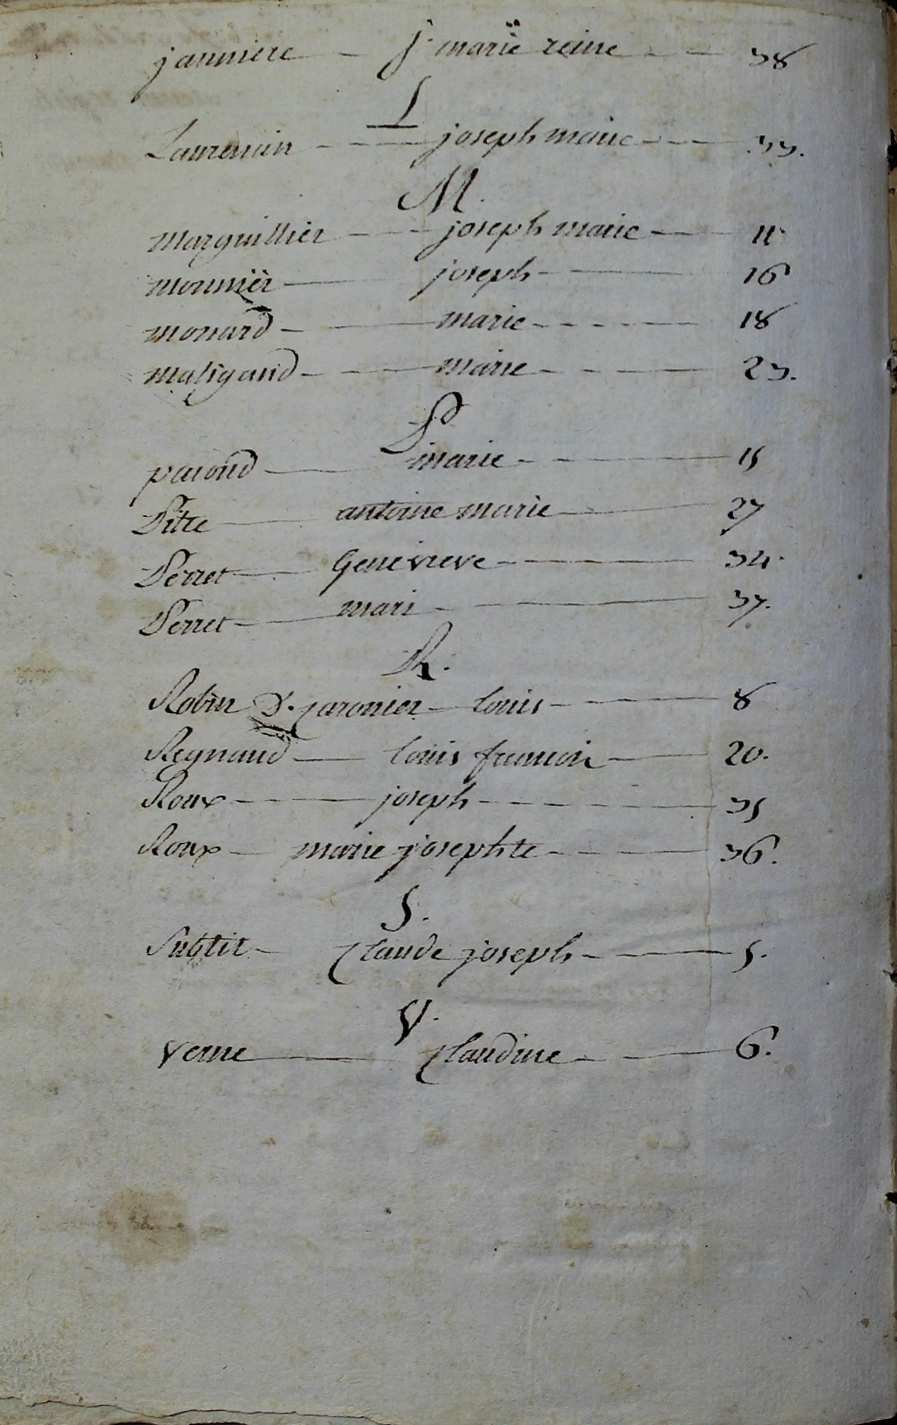 janniere — j. marie reine — 38
L
Laurencin — joseph marie — 33.
M.
marguillier — joseph marie — 11
monnier — joseph — 16
monard — marie — 18
maligand — marie — 23.
P
marie — 15
Pitre — antoine marie — 27
Perret — Genevieve — 34.
Perret — mari — 37.
R.
Robin d. jaronier — louis — 8
Regnaud — louis francois — 20.
Roux — joseph — 35
Roux — marie josephte — 36.
S.
Subtil — Claude joseph — 5.
V.
verne — Claudine — 6.